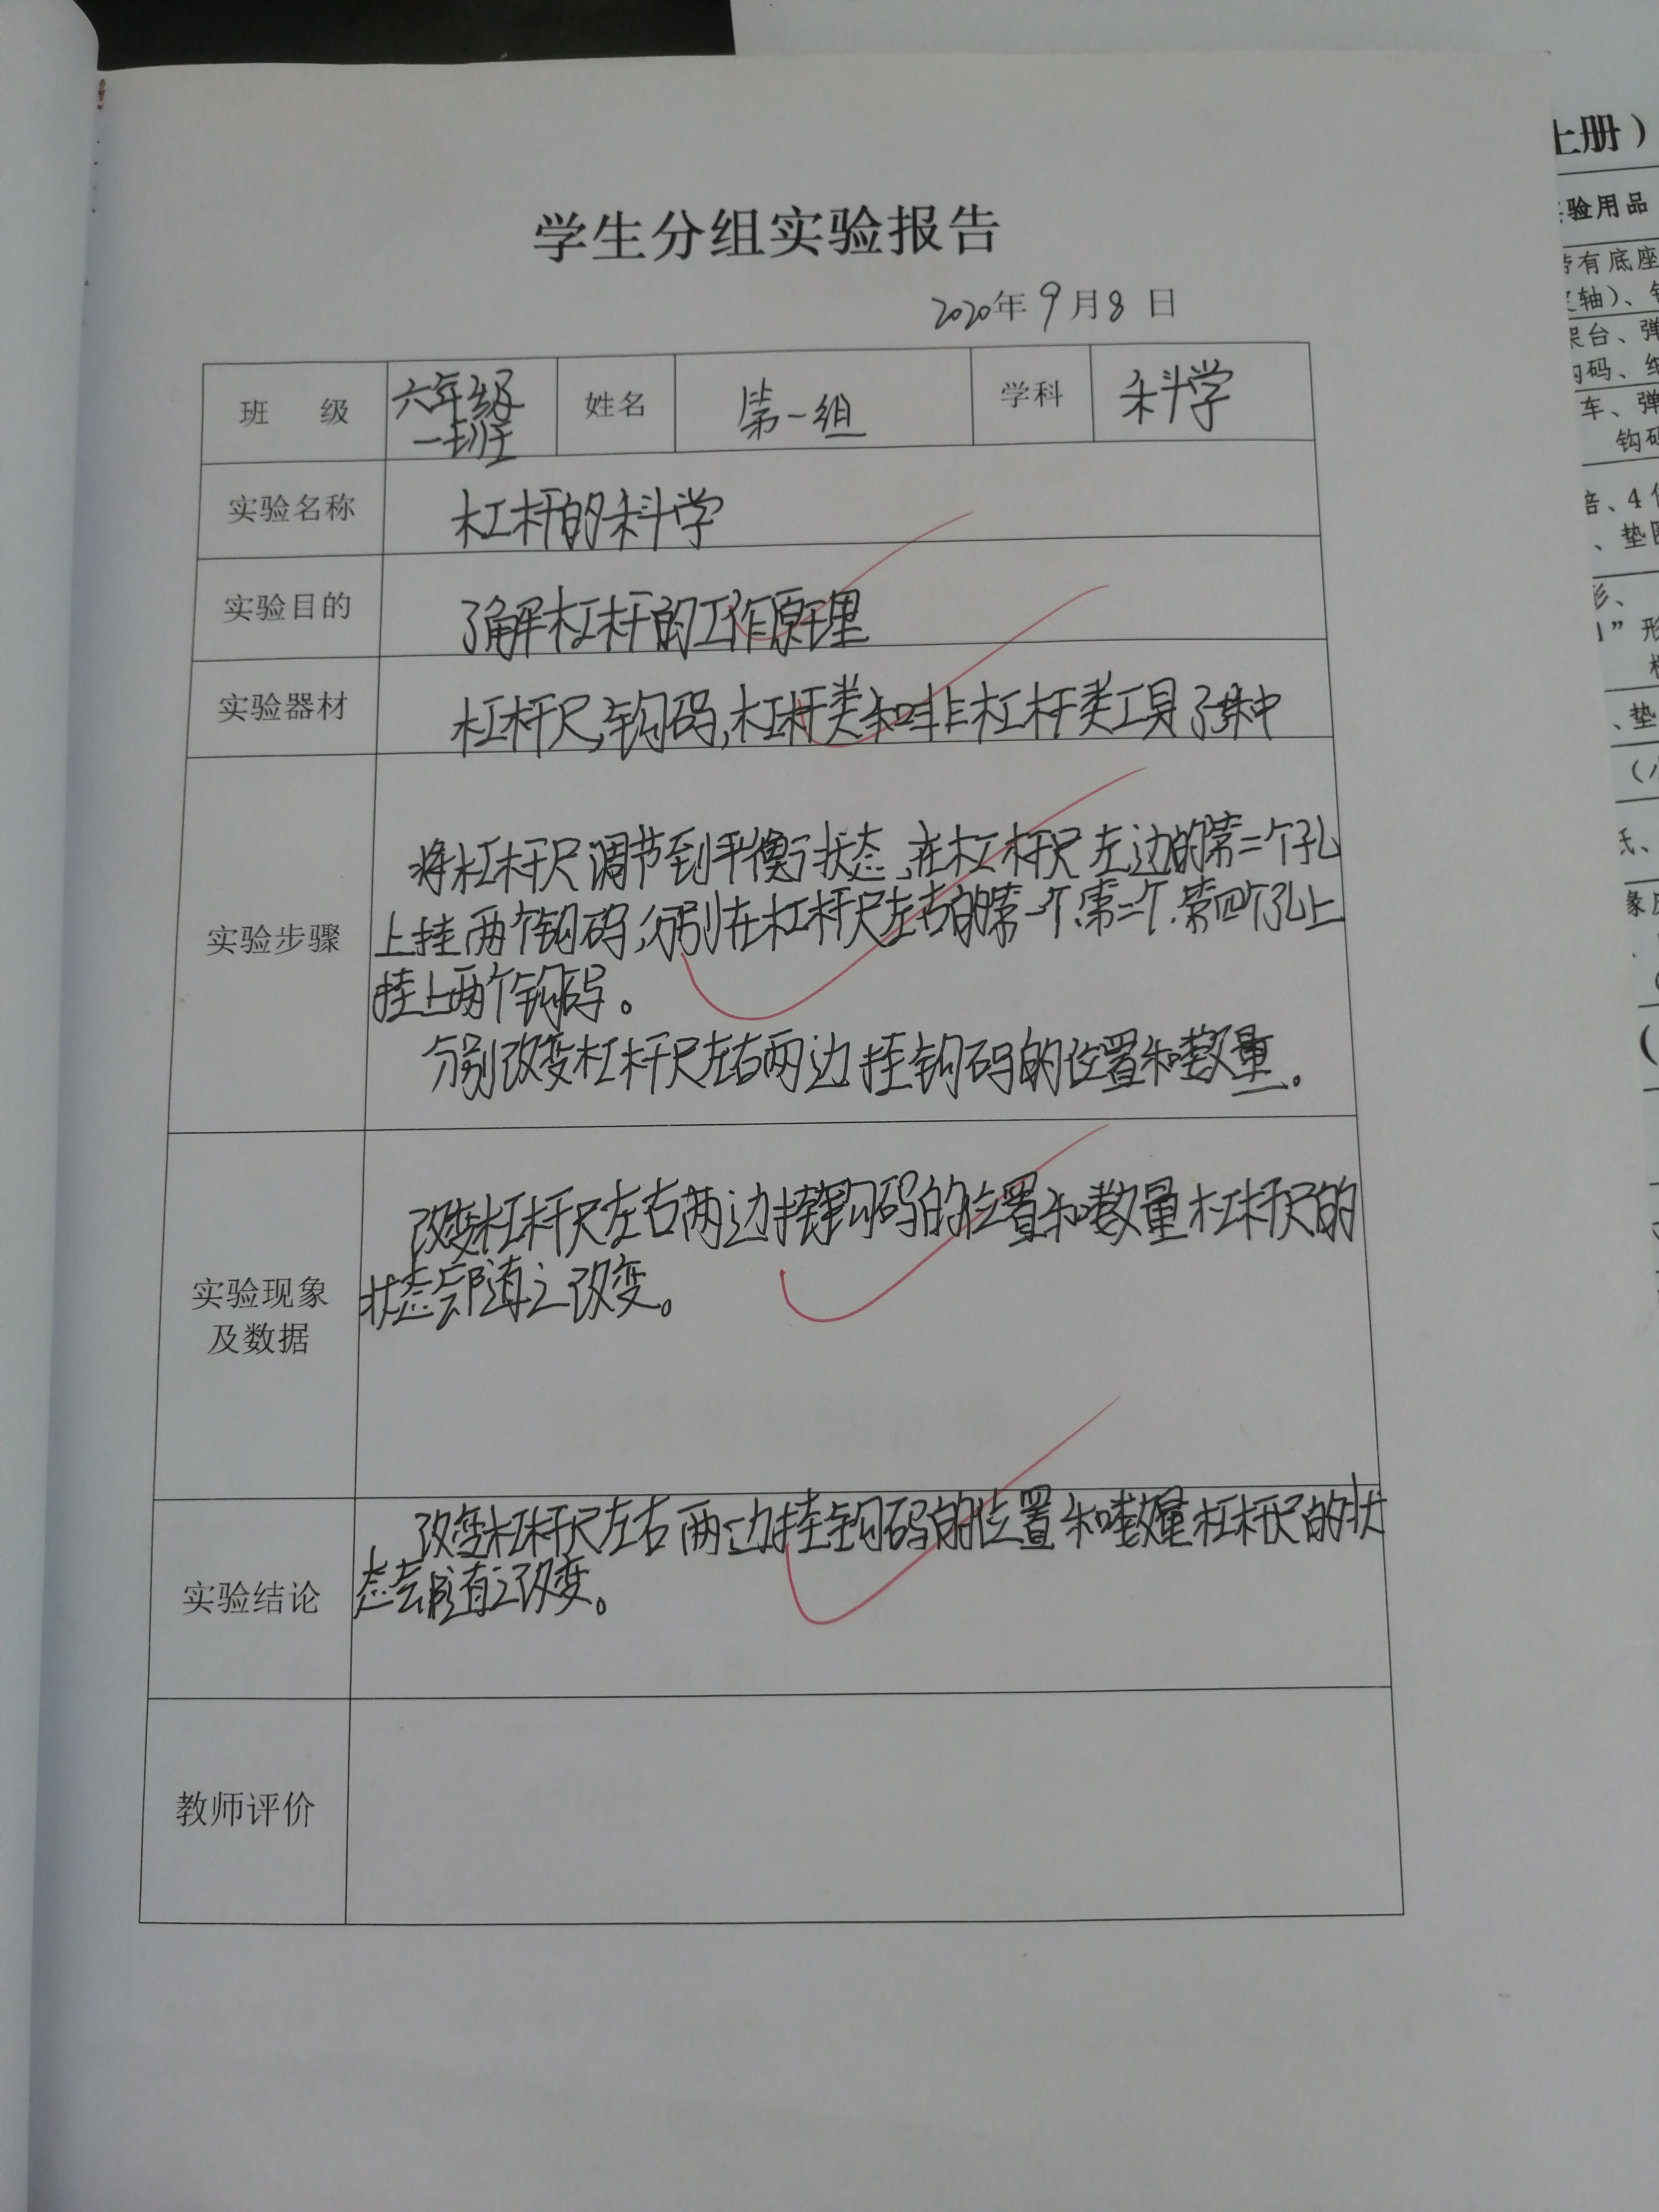 学生分组实验报告
2020年9月8日
班 级 六年级一班 姓名 第一组 学科 科学
实验名称 杠杆的科学
实验目的 了解杠杆的工作原理
实验器材 杠杆尺,钩码,杠杆类和非杠杆类工具
实验步骤
将杠杆尺调节到平衡状态,在杠杆尺左边的第二个孔
上挂两个钩码,分别在杠杆尺左右的第一个.第二个.第四个孔上
挂上两个钩码。
分别改变杠杆尺左右两边挂钩码的位置和数量。
实验现象
及数据
改变杠杆尺左右两边挂钩码的位置和数量杠杆尺的
状态会随之改变。
实验结论
改变杠杆尺左右两边挂钩码的位置和数量杠杆尺的状
态会随之改变。
教师评价
上册)
验用品
有底座
轴)、
台、弹
码、
车、弹
钩码
、4
、垫
形
、垫